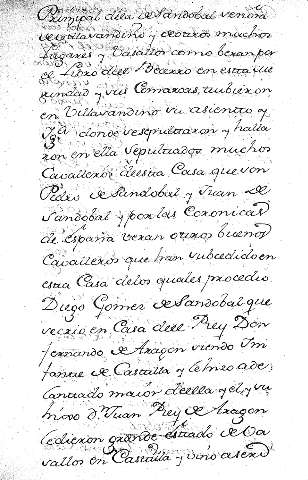 Principal dela de Sandobal venian
de Villavandino y de otros muchos
lugares y Vasallos como veran por
el Libro dell Bezerro en esta me
rindad y sus Comarcas, tubieron
en Villavandino su asiento y
donde se sepultaron y halla
ron en ella sepultados muchos
Cavalleros desta Casa que son
Pedro de Sandobal y Juan de
Sandobal y por las Coronicas
de españa veran otros buenos
Cavalleros que han subcedido en
esta Casa delos quales procedio
Diego Gomez de Sandobal que
se crio en Casa dell Rey Don
fernando de Aragon siendo Inf
fante de Castilla y le hizo ade
lantado maior de ella y el, y su
hixo D. Juan Rey de Aragon
le dieron grande estado de Va
sallos en Castilla y vino a ser